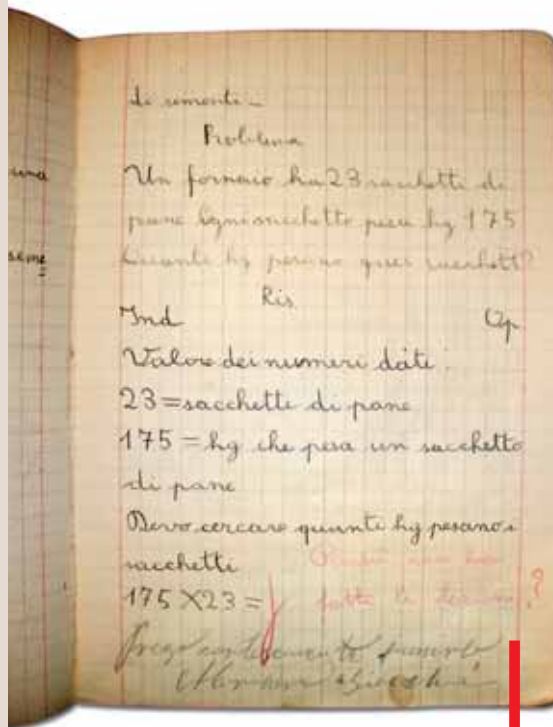 una
seme
di semente -
Problema
Un fornaio ha 23 sacchetti di
pane Ogni sacchetto pesa hg 175
Quanto hg pesano quei sacchetti?
Ris
Ind Op
Valore dei numeri dati:
23 = sacchetti di pane
175 = hg che pesa un sacchetto
di pane
Devo cercare quanti hg pesano i
sacchetti
175 X 23 =
Perchè non hai
fatto la ?
Prego